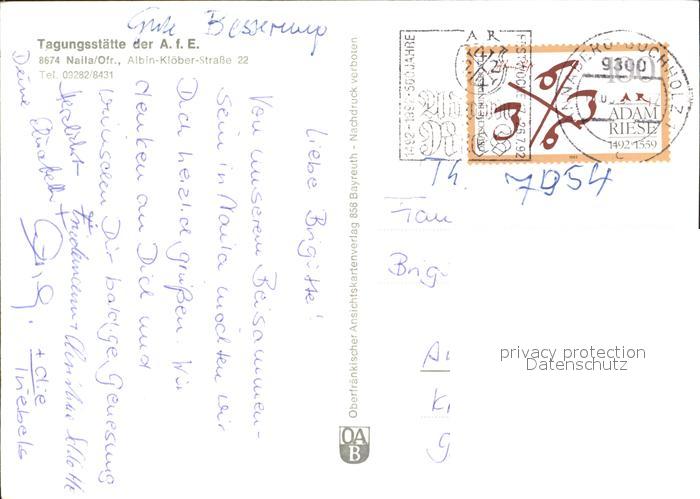 Gute Besserung
Tagungsstätte der A. f. E.
8674 Naila/Ofr., Albin-Klöber-Straße 22
Tel. 09282/8431
Liebe Brigitte!
Von unserem Beisammen-
sein in Naila möchten wir
Dich herzlich grüßen. Wir
denken an Dich und
wünschen Dir baldige Genesung
Friedemann + Christian
Deine Elisabeth
+ die
Triebels
Oberfränkischer Ansichtskartenverlag 858 Bayreuth - Nachdruck verboten
OA
B
1492-1992-500 JAHRE
AR
Adam
Ries
ANNABERG-BUCHHOLZ 1
9300
100
AR
ADAM
RIESE
1492-1559
Th. 7954
Frau
Brigi
A
K
G
privacy protection
Datenschutz